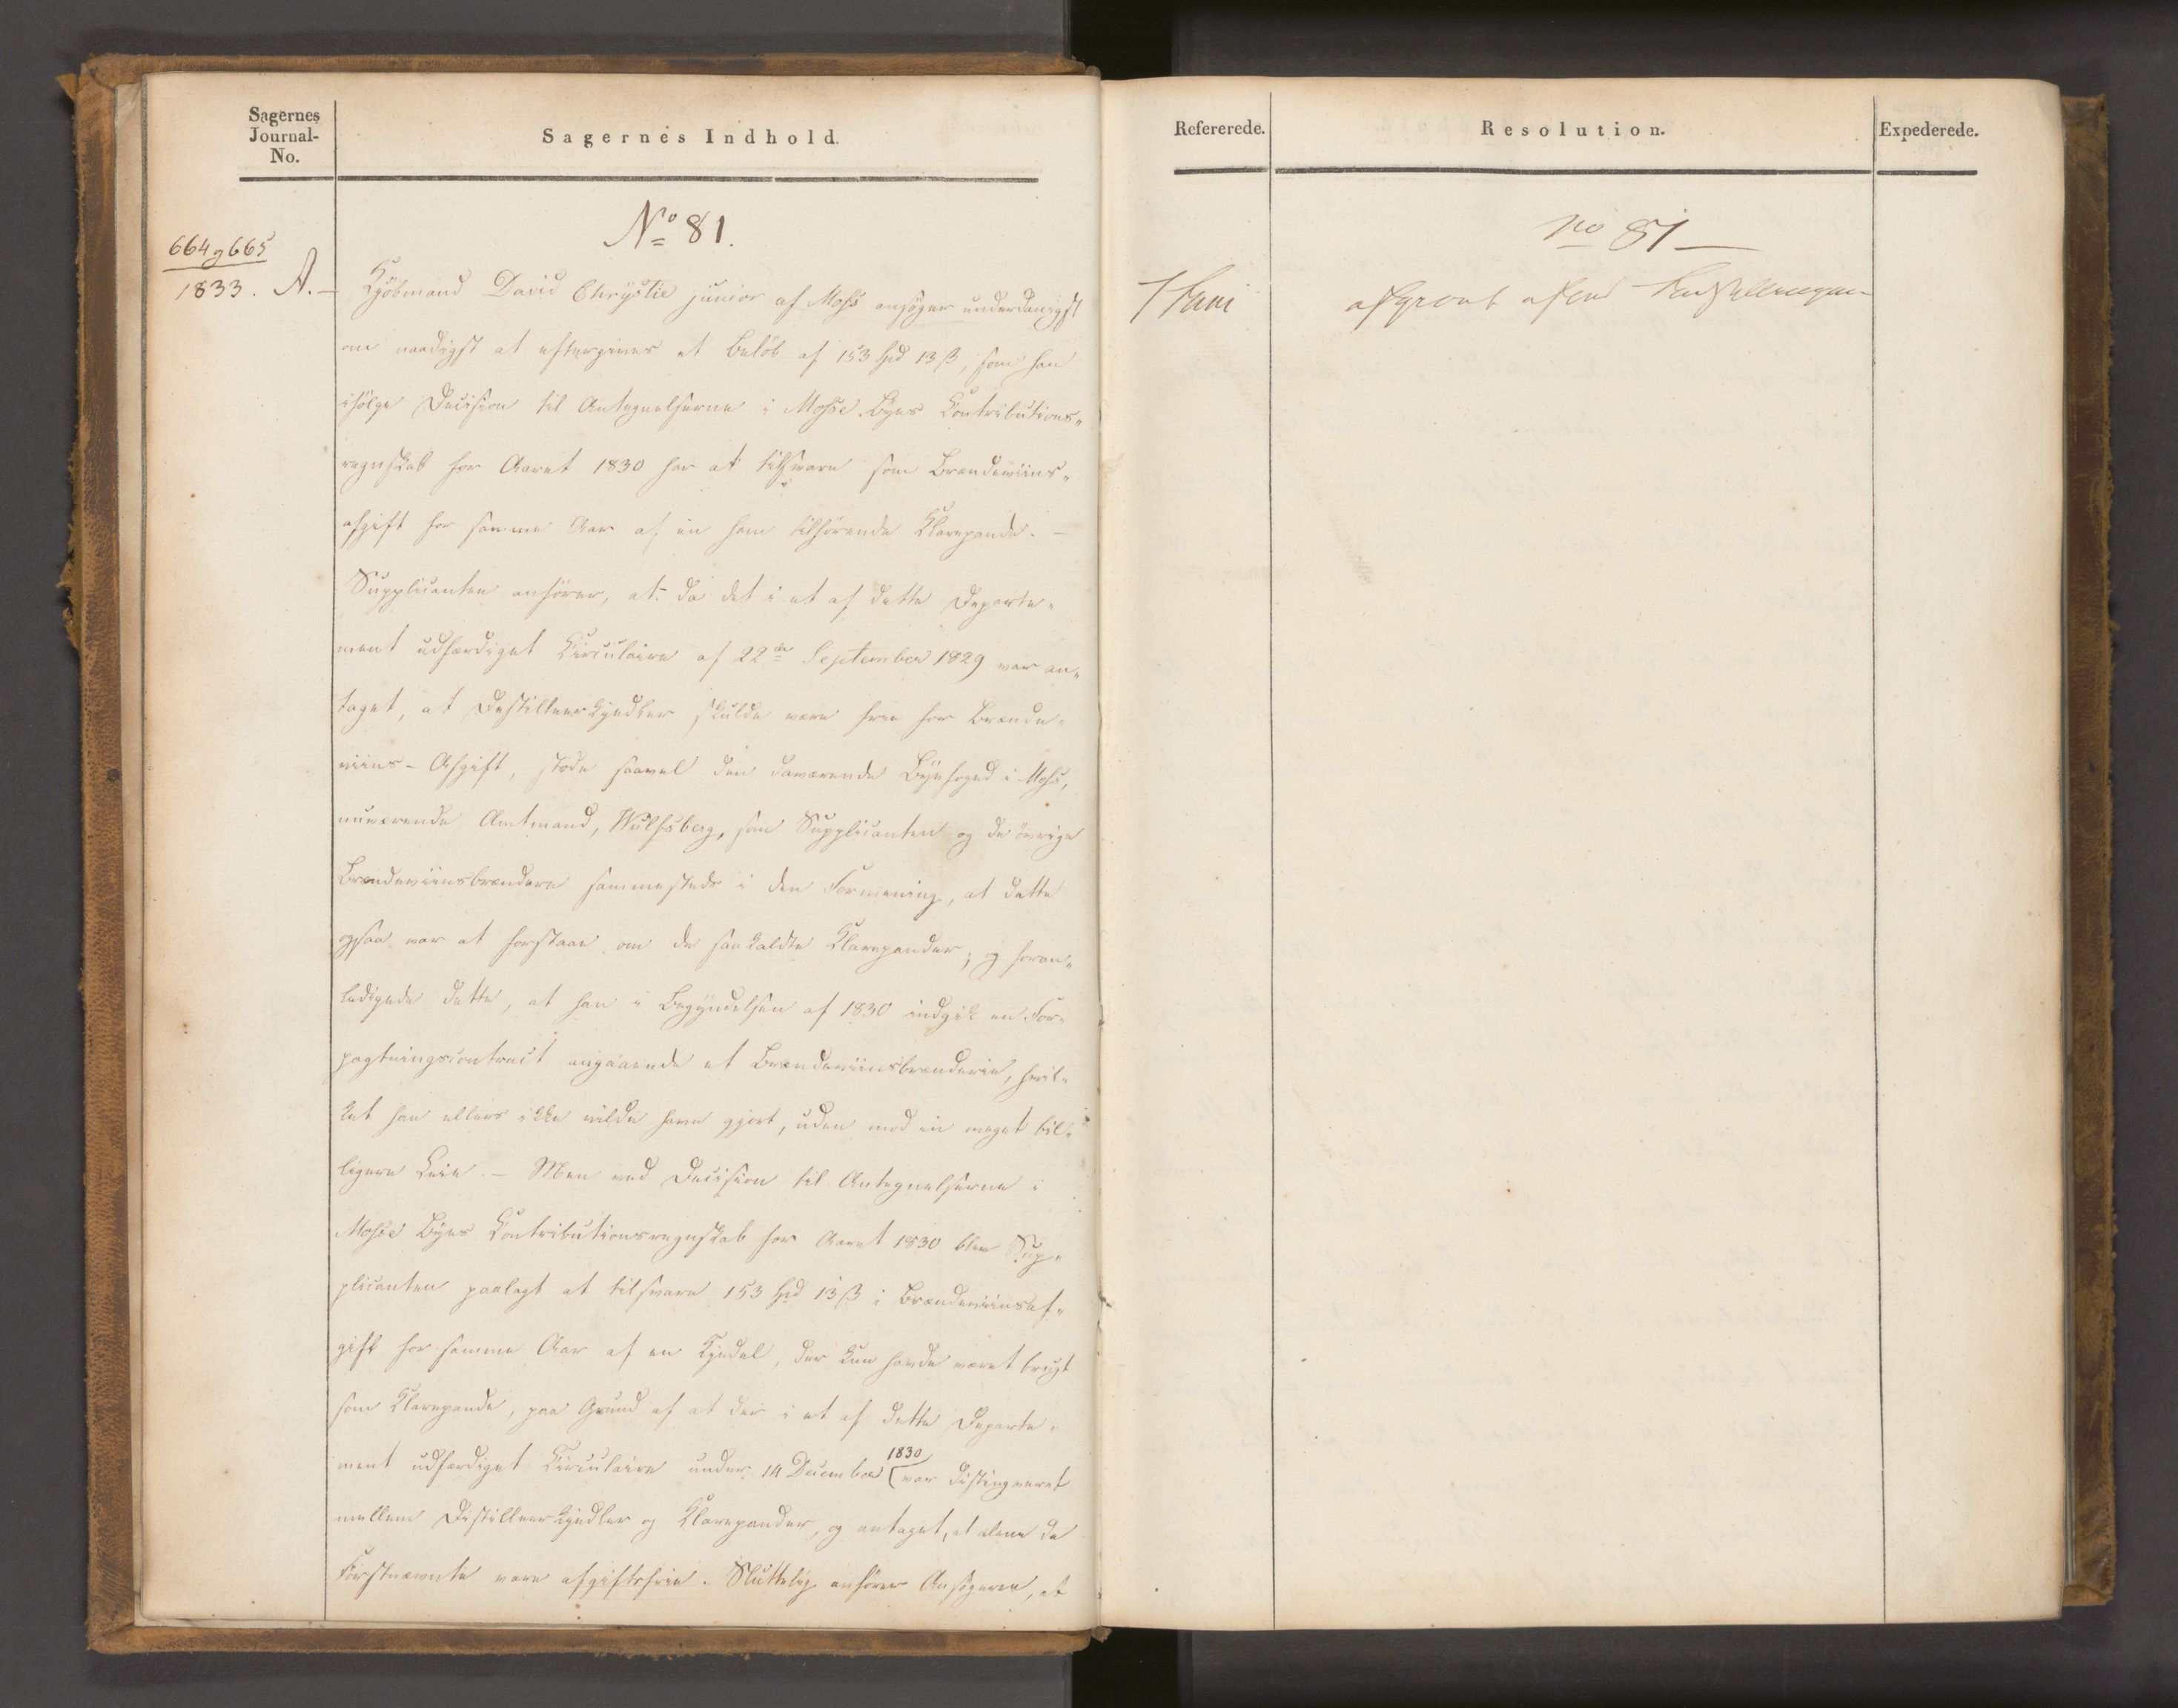 Sagernes
Journal-
No.
Sagernes Indhold.
No 81.
664 og 665
1833. A. –
Kjöbmand David Chrystie junior af Moss ansøger underdanigst
om naadigst at eftergives et Beløb af 153 Spd 13 ß, som han
ifølge Decision til Antegnelserne i Mosse Byes Contributions-
regnskab for Aaret 1830 har at tilsvare som Brændeviins-
afgift for samme Aar af en ham tilhørende Klarepande. –
Supplicanten anfører, at da det i et af dette Departe-
ment udfærdiget Circulaire af 22de September 1829 var an-
taget, at Destilleerkjedler skulde være frie for Brænde-
viins-Afgift, stode saavel den daværende Byefoged i Moss,
nuværende Amtmand, Wulfsberg, som Supplicanten og de övrige
Brændeviinsbrændere sammesteds i den Formening, at dette
ogsaa var at forstaae om de saakaldte Klarepander; og foran-
ledigede dette, at han i Begyndelsen af 1830 indgik en For-
pagtningscontract angaaende et Brændeviinsbrænderie, hvil-
ket han ellers ikke vilde have gjort, uden mod en meget bil-
ligere Leie. – Men ved Decision til Antegnelserne i
Mosse Byes Contributionsregnskab for Aaret 1830 blev Sup-
plicanten paalagt at tilsvare 153 Spd 13 ß i Brændeviinsaf-
gift for samme Aar af en Kjedel, der kun havde været brugt
som Klarepande, paa Grund af at der i et af dette Departe-
ment udfærdiget Circulaire under 14 December 1830 var distingveret
mellem Distilleerkjedler og Klarepander, og antaget, at alene de
Förstnævnte vare afgiftsfrie. Sluttelig anfører Ansøgeren, at
Refererede.
Resolution.
Expederede.
No 81 –
7 Juni
afgjort efter Indstillingen